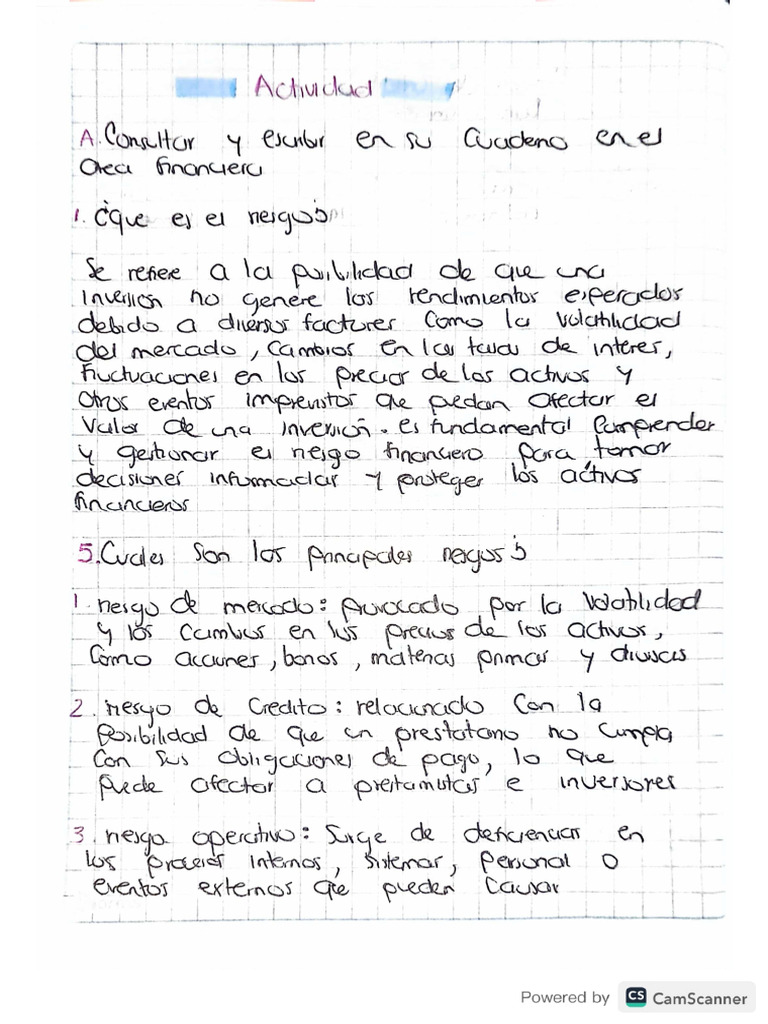 Actividad
A. Consultar y escribir en su cuaderno en el
area financiera
1. ¿que es el riesgo?
Se refiere a la posibilidad de que una
inversion no genere los rendimientos esperados
debido a diversos factores como la volatilidad
del mercado, cambios en las tasas de interes,
fluctuaciones en los precios de los activos y
otros eventos imprevistos que puedan afectar el
valor de una inversión. es fundamental comprender
y gestionar el riesgo financiero para tomar
decisiones informadas y proteger los activos
financieros
5. Cuales son los principales riesgos?
1. riesgo de mercado: provocado por la volatilidad
y los cambios en los precios de los activos,
como acciones, bonos, materias primas y divisas
2. riesgo de credito: relacionado con la
posibilidad de que un prestatario no cumpla
con sus obligaciones de pago, lo que
puede afectar a prestamistas e inversores
3. riesgo operativo: surge de deficiencias en
los procesos internos, sistemas, personal o
eventos externos que pueden causar
Powered by CS CamScanner